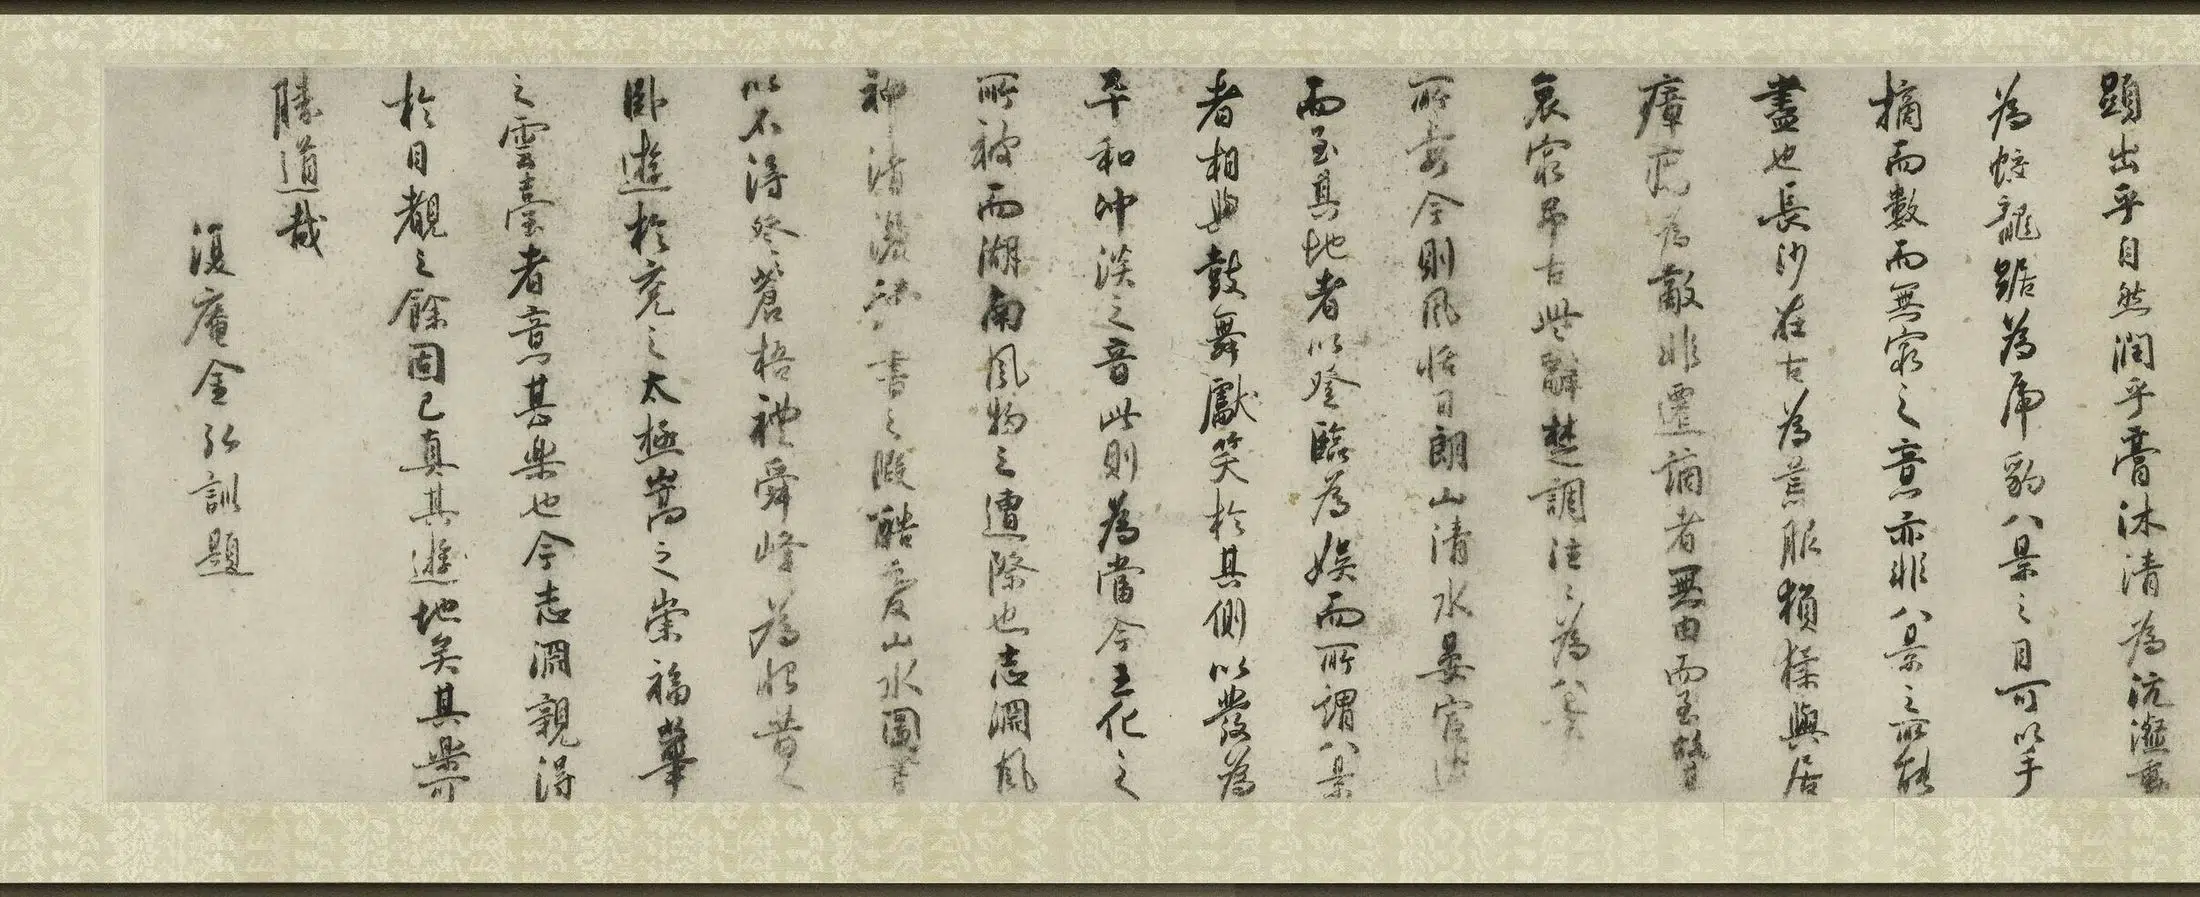 顕出乎自然潤乎膏沐清為沆瀣
為蛟龍踞為虎豹八景之目可以手
摘而數而無窮之意亦非八景之所能
盡也長沙在古為荒服猿猱與居
瘴癘為敵非遷謫者無由而至
哀窮吊古此辭楚調往々為八景
所奪今則風恬日朗山清水晏官
而至其地者以登臨為娛而所謂八景
者相與鼓舞獻笑於其側以發為
平和沖淡之音此則為當今王化之
所被而湖南風物之遭際也志淵風
神清 書之暇酷愛山水圖
以不得登蒼梧禮舜峰為恨昔人
臥遊於兗之太極嵩之崇福華
之雲臺者意甚樂也今志淵親得
於目覩之餘固已真其遊地矣其樂可
勝道哉
復庵金弘訓題